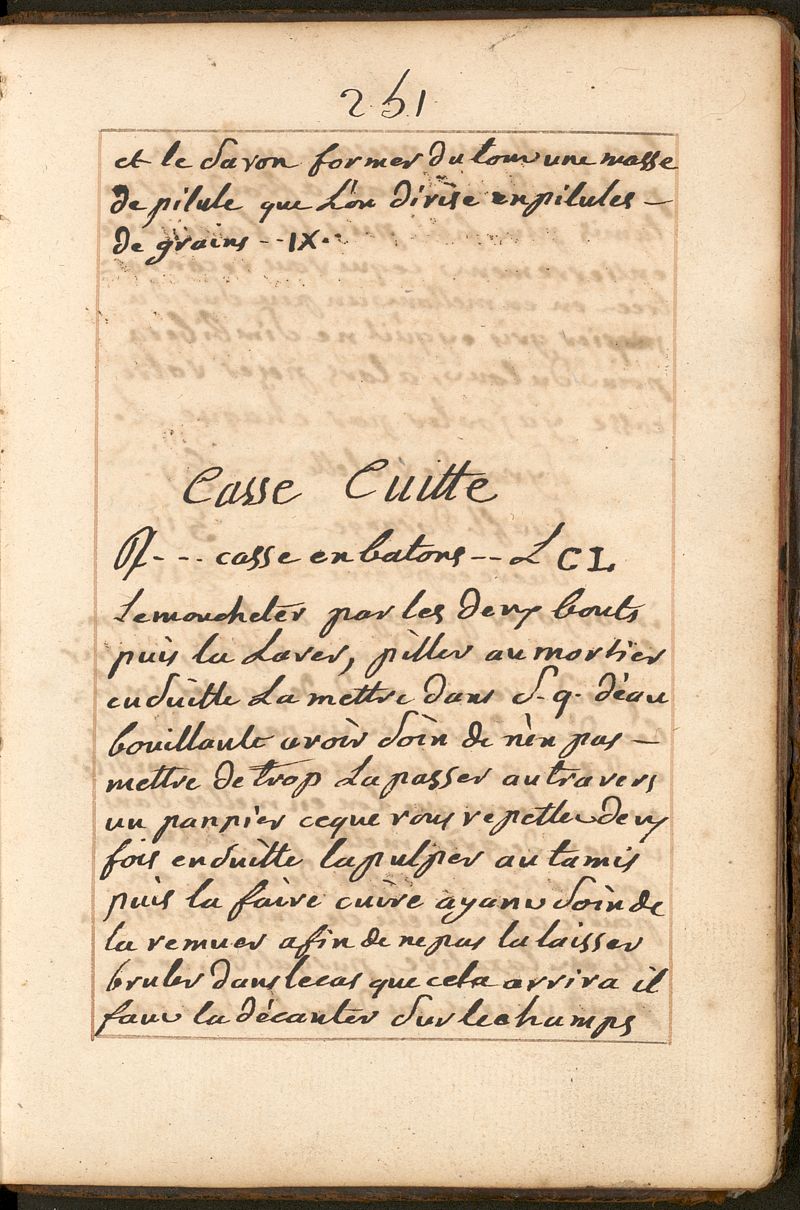 251
et le Savon former du tout une masse
de pilule que L'on divise en pilules –
de grains -- IX.
Casse Cuitte
R --- casse en batons -- L CL
Le moucheter par les deux bouts
puis la Laver, piller au mortier
ensuitte La mettre dans S.q. d'éau
bouillante avoir Soin de n'en pas –
mettre de trop La passer au travers
un panpier ce que vous repettez deux
fois ensuitte la pulper au tamis
puis la faire cuire ayant Soin de
la remuer afin de ne pas la laisser
bruler dans le cas que cela arriva il
faut la décanter Sur le champs